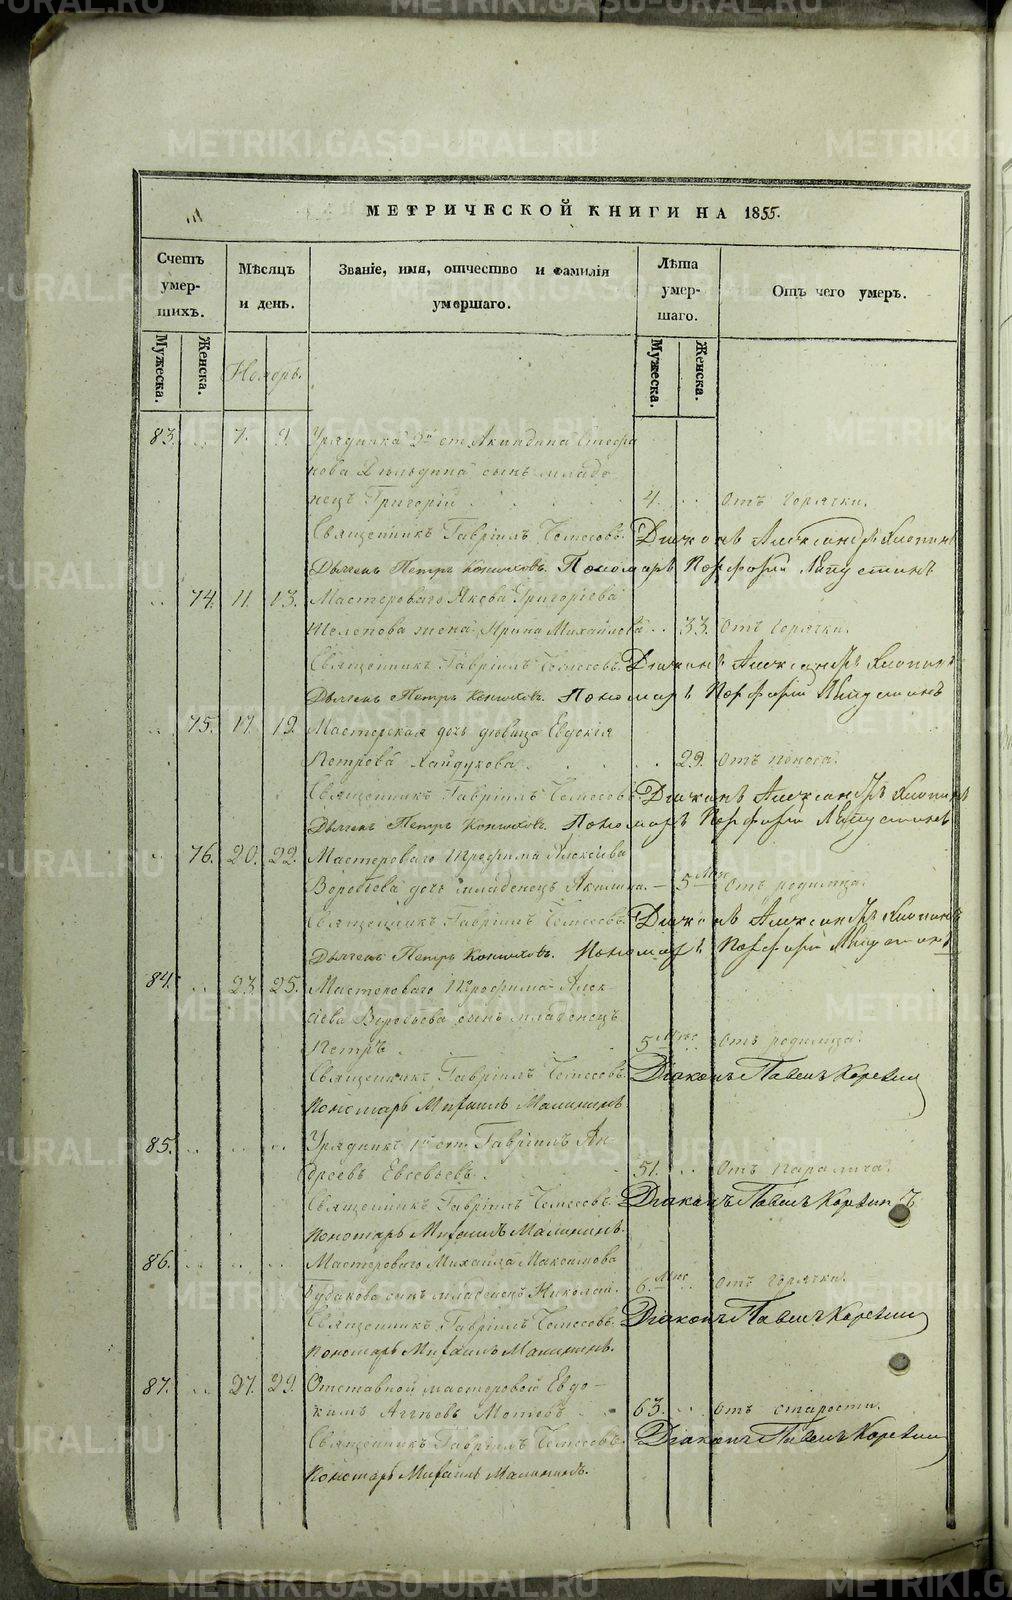 МЕТРИЧЕСКОЙ КНИГИ НА 1855.
Счетъ умер-шихъ.
Мѣсяцъ и день.
Званіе, имя, отчество и фамилія умершаго.
Лѣта умер-шаго.
Отъ чего умеръ.
Мужеска. Женска.
Мужеска. Женска.
Ноябрь.
83. 7. 9. Урядника 2й ст. Акиндина Стефа
нова сынъ младе
нецъ Григорій 4. Отъ горячки.
Священникъ Гавріилъ Чемесовъ. Діаконъ Александръ Хлопинъ
Дьячекъ Петръ Конюховъ. Пономарь Порфирій Лапустинъ
74. 11. 13. Мастероваго Якова Григорьева
Шелепова жена Ирина Михайлова 33. Отъ горячки.
Священникъ Гавріилъ Чемесовъ. Діаконъ Александръ Хлопинъ
Дьячекъ Петръ Конюховъ. Пономарь Порфирій Лапустинъ
75. 17. 19. Мастерская дочь дѣвица Евдокія
Петрова Хайдукова 29. Отъ поноса.
Священникъ Гавріилъ Чемесовъ. Діаконъ Александръ Хлопинъ
Дьячекъ Петръ Конюховъ. Пономарь Порфирій Лапустинъ
76. 20. 22. Мастероваго Трофима Алексѣева
Воробьева дочь младенецъ Акилина. 5 Мѣс Отъ родимца.
Священникъ Гавріилъ Чемесовъ. Діаконъ Александръ Хлопинъ
Дьячекъ Петръ Конюховъ. Пономарь Порфирій Лапустинъ
84. 23. 25. Мастероваго Трофима Алек
сѣева Воробьева сынъ младенецъ
Петръ. 5 Мѣс Отъ родимца.
Священникъ Гавріилъ Чемесовъ. Діаконъ Павелъ Коровин
Пономарь Михаилъ Малининъ.
85. Урядникъ 1й ст. Гавріилъ Ан
дреевъ Евсевьевъ. 51. Отъ паралича.
Священникъ Гавріилъ Чемесовъ. Діаконъ Павелъ Коровинъ
Пономарь Михаилъ Малининъ.
86. Мастероваго Михаила Максимова
Будакова сынъ младенецъ Николай. 6. Мѣс Отъ горячки.
Священникъ Гавріилъ Чемесовъ. Діаконъ Павелъ Коровин
Пономарь Михаилъ Малининъ.
87. 27. 29. Отставной мастеровой Евдо-
кимъ Аггѣевъ Мотевъ 63. Отъ старости.
Священникъ Гавріилъ Чемесовъ. Діаконъ Павелъ Коровин
Пономарь Михаилъ Малининъ.
METRIKI.GASO-URAL.RU